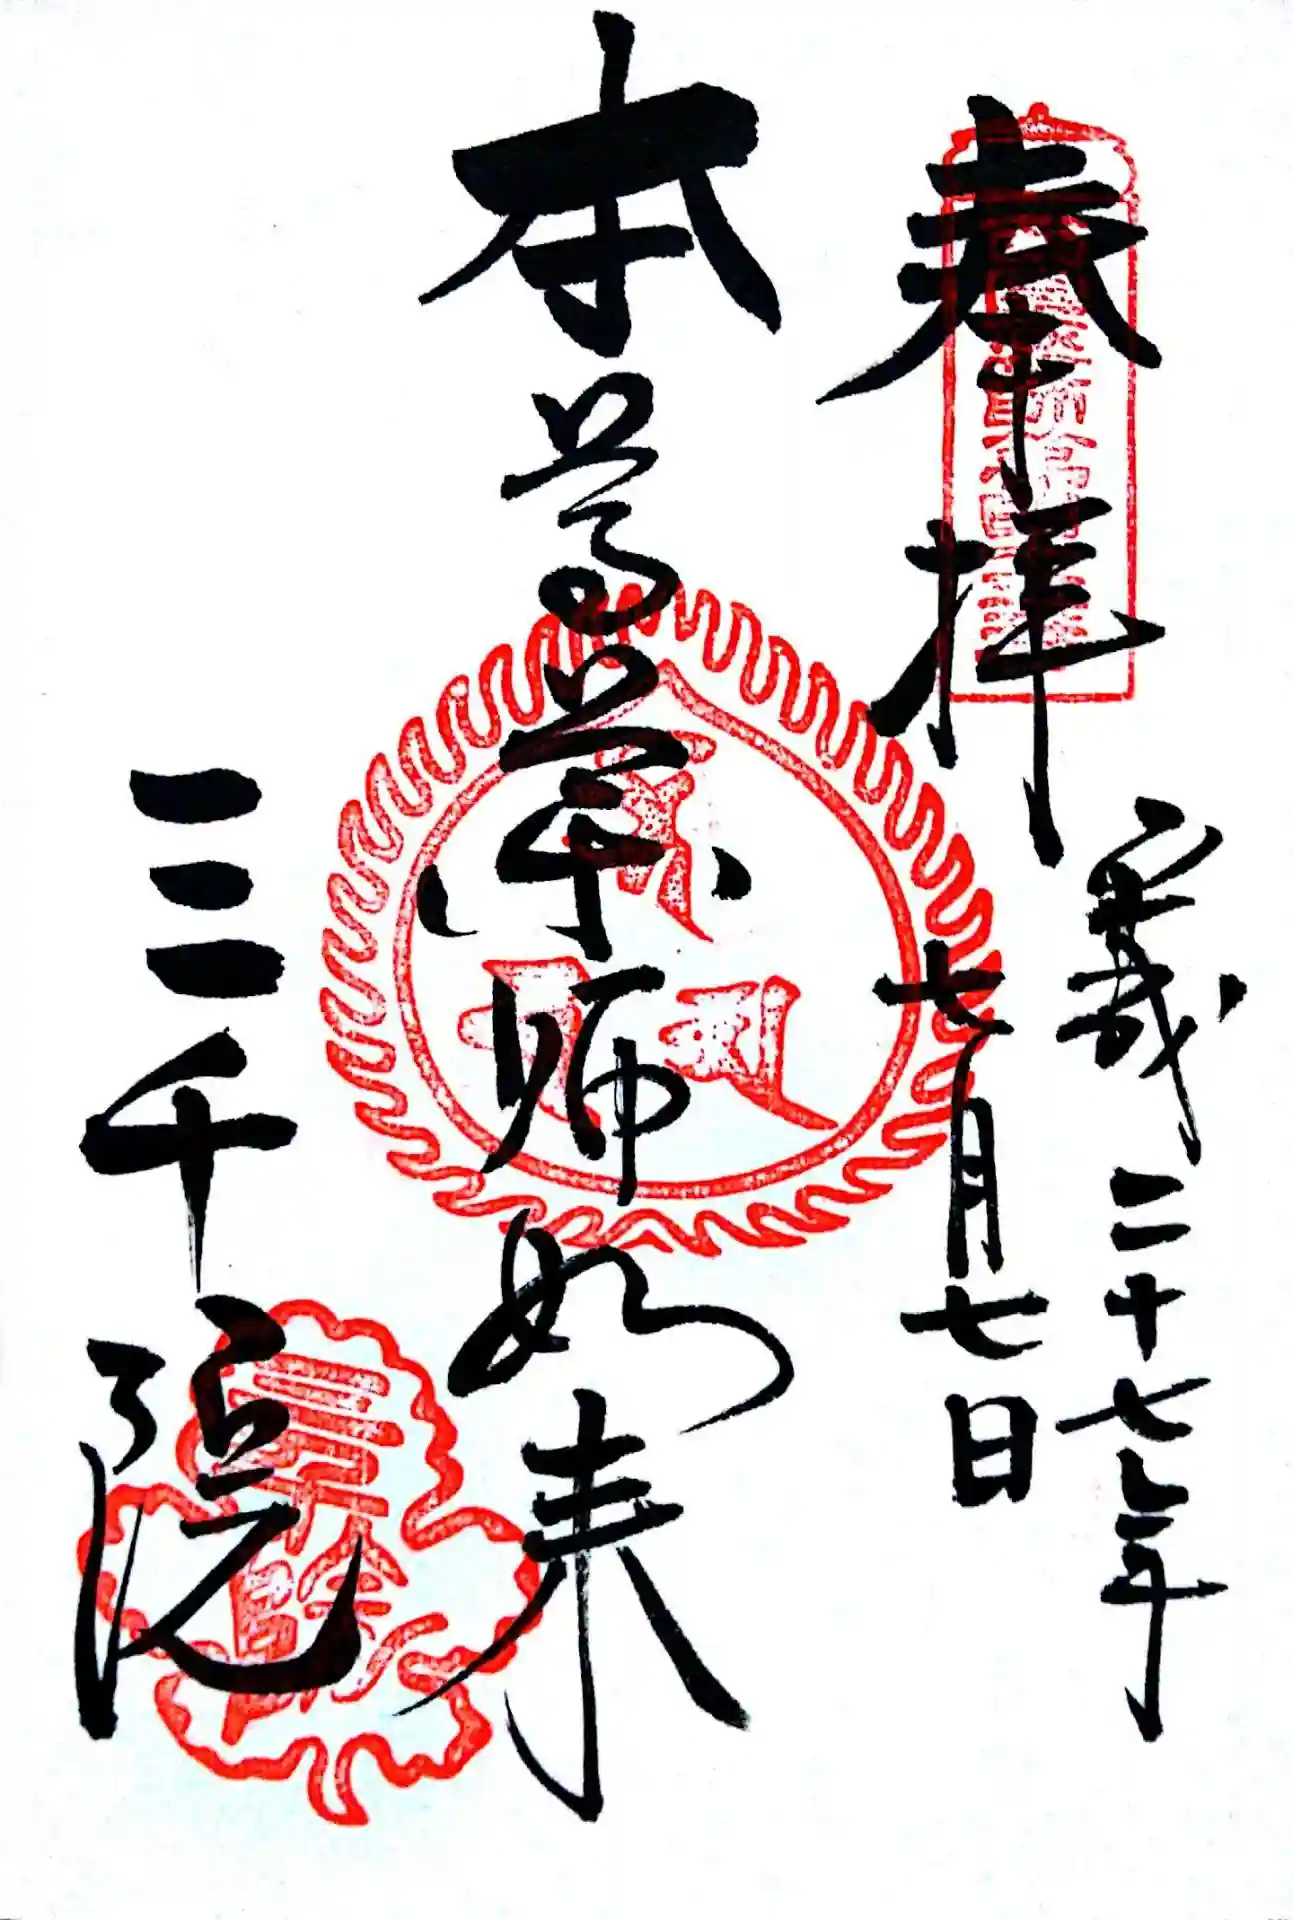 奉拝
平成二十七年
七月七日
本尊薬師如来
三千院